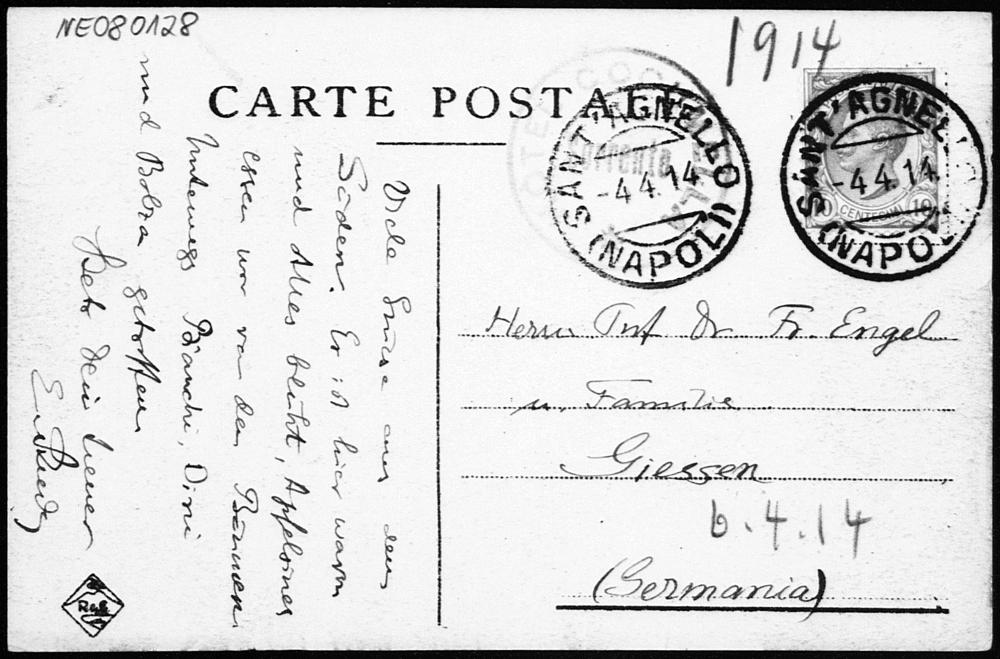 NE080128
1914
CARTE POSTALE
SANT'AGNELLO
-4.4.14
(NAPOLI)
Sorrento
SANT'AGNELLO
-4.4.14
(NAPOLI)
10 CENTESIMI 10
Viele Grüsse aus dem
Süden. Es ist hier warm
und Alles blüht, Apfelsinen
essen wir von den Bäumen
Unterwegs Bianchi, Dini
und Bolza getroffen
stets Dein treuer
Herrn Prof Dr Fr. Engel
u. Familie
Giessen
6.4.14
(Germania)